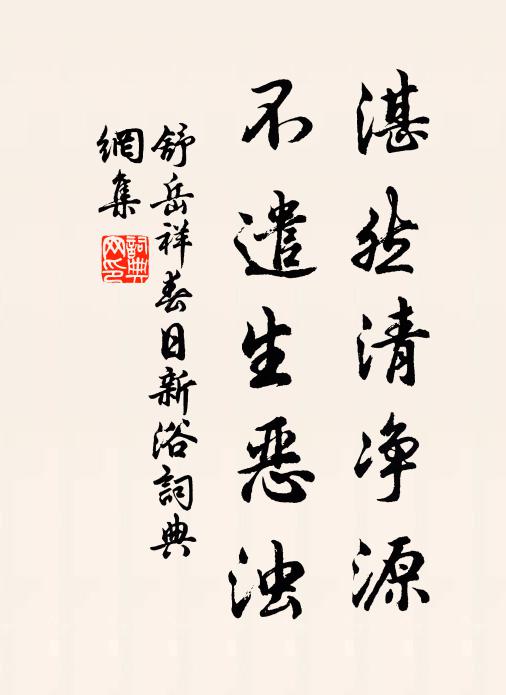 湛然清净源
不遣生恶浊
舒岳祥春日新浴詞典
網集
詞典
网印